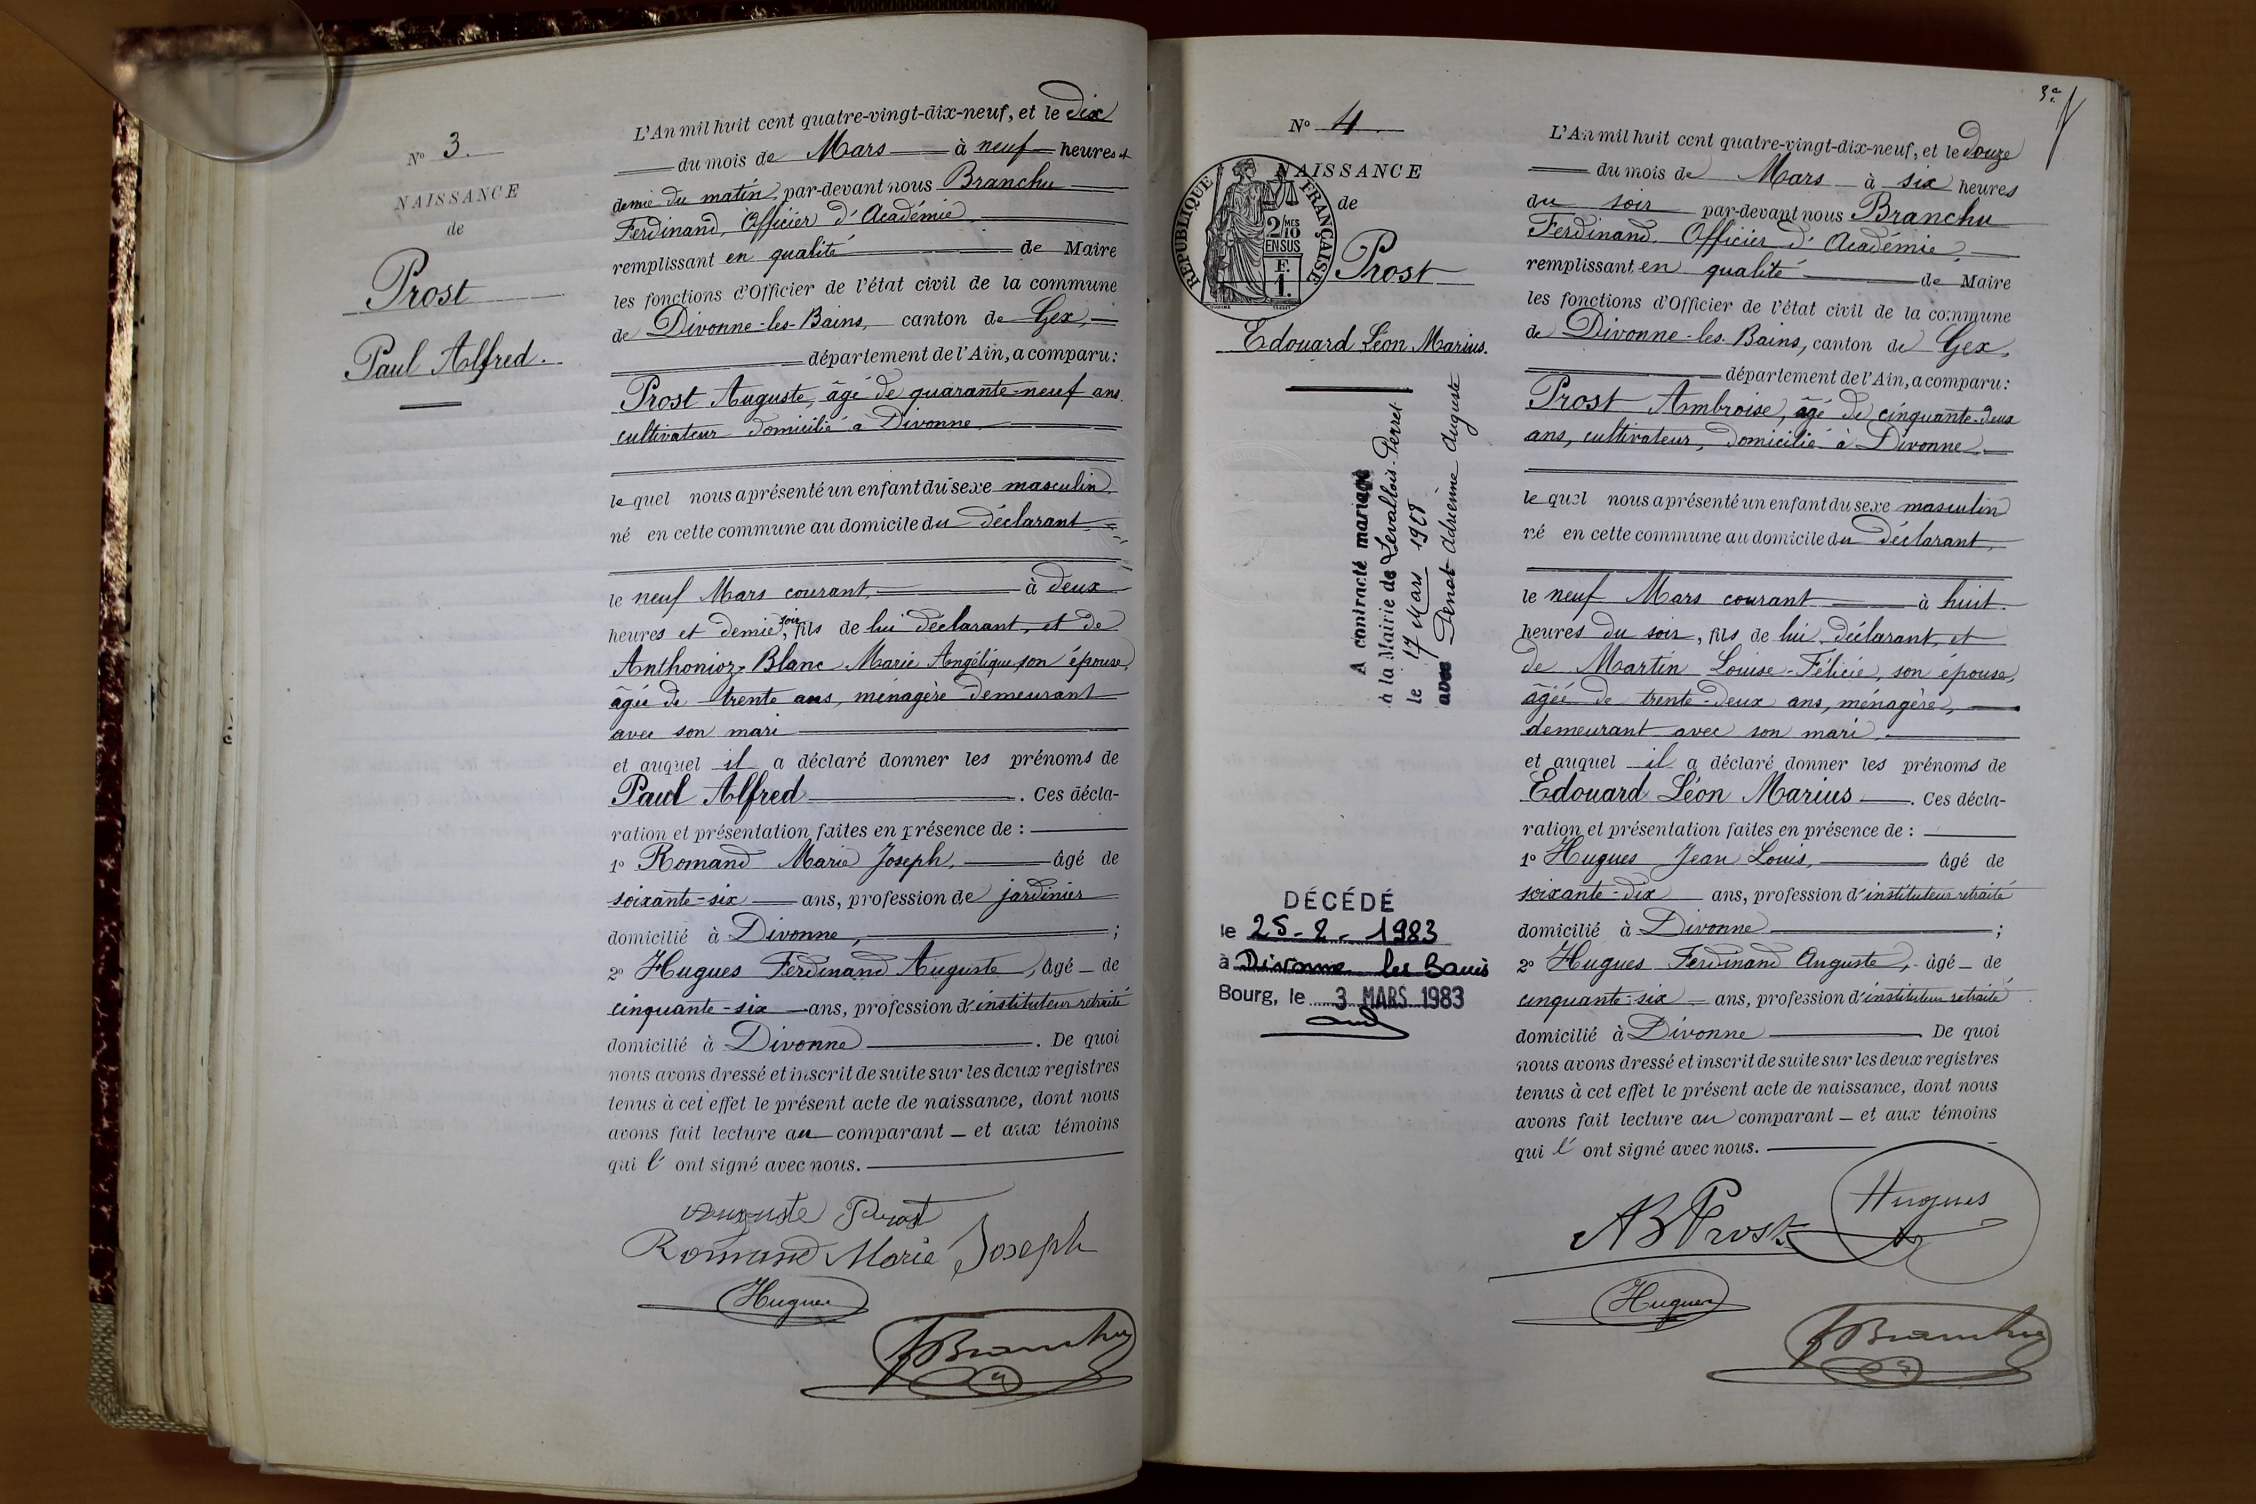 N° 3.
NAISSANCE
de
Prost
Paul Alfred.
L'An mil huit cent quatre-vingt-dix-neuf, et le dix
du mois de Mars à neuf heures et
demie du matin, par-devant nous Branchu
Ferdinand, Officier d'Académie
remplissant en qualité de Maire
les fonctions d'Officier de l'état civil de la commune
de Divonne-les-Bains, canton de Gex,
département de l'Ain, a comparu :
Prost Auguste, âgé de quarante-neuf ans.
cultivateur domicilié à Divonne
le quel nous a présenté un enfant du sexe masculin
né en cette commune au domicile du déclarant
le neuf Mars courant, à deux
heures et demie soir, fils de lui déclarant, et de
Anthonioz-Blanc Marie Angélique, son épouse,
âgée de trente ans, ménagère demeurant
avec son mari
et auquel il a déclaré donner les prénoms de
Paul Alfred . Ces décla-
ration et présentation faites en présence de :
1° Romand Marie Joseph, âgé de
soixante-six ans, profession de jardinier
domicilié à Divonne, ;
2° Hugues Ferdinand Auguste, âgé de
cinquante-six ans, profession d'instituteur retraité
domicilié à Divonne . De quoi
nous avons dressé et inscrit de suite sur les deux registres
tenus à cet effet le présent acte de naissance, dont nous
avons fait lecture au comparant et aux témoins
qui l'ont signé avec nous.
Auguste Prost
Romand Marie Joseph
Hugues
FBranchu
3e
N° 4.
NAISSANCE
de
RÉPUBLIQUE FRANÇAISE
2/10 MES
EN SUS
F.
1.
Prost
Edouard Léon Marius.
A contracté mariage
à la Mairie de Levallois-Perret
le 17 Mars 1928
avec Denot Adrienne Auguste
DÉCÉDÉ
le 25-2-1983
à Divonne les Bains
Bourg, le 3 MARS 1983
L'An mil huit cent quatre-vingt-dix-neuf, et le Douze
du mois de Mars à six heures
du soir par-devant nous Branchu
Ferdinand, Officier d'Académie,
remplissant en qualité de Maire
les fonctions d'Officier de l'état civil de la commune
de Divonne-les-Bains, canton de Gex,
département de l'Ain, a comparu :
Prost Ambroise, âgé de cinquante-deux
ans, cultivateur, domicilié à Divonne
le quel nous a présenté un enfant du sexe masculin
né en cette commune au domicile du déclarant,
le neuf Mars courant à huit
heures du soir, fils de lui déclarant, et
de Martin Louise-Félicie, son épouse,
âgée de trente-deux ans, ménagère,
demeurant avec son mari,
et auquel il a déclaré donner les prénoms de
Edouard Léon Marius . Ces décla-
ration et présentation faites en présence de :
1° Hugues Jean Louis, âgé de
soixante-dix ans, profession d'instituteur retraité
domicilié à Divonne ;
2° Hugues Ferdinand Auguste, âgé de
cinquante-six ans, profession d'instituteur retraité
domicilié à Divonne De quoi
nous avons dressé et inscrit de suite sur les deux registres
tenus à cet effet le présent acte de naissance, dont nous
avons fait lecture au comparant et aux témoins
qui l'ont signé avec nous.
AB Prost
Hugues
Hugues
FBranchu